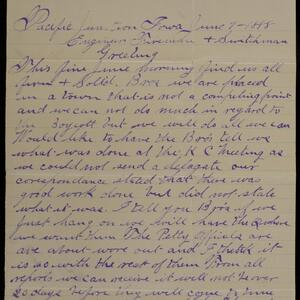 Pacific Junction Iowa June 7-1888
Engineer Fireman + Switchman
Greeting
This fine June morning find us all
firm + Solid. Bros we are placed
in a town that is not a competing point
and we can not do much in regard to
Boycott but we will do all we can
Would like to have the Bros tell us
what was done at the K C Meeting as
we could not send a delegate our
correspondence stated that there was
good work done but did not state
what it was. I tell you Bros if we
just hang on we will have the
we want them The Petty officials
are about wore out and I think it
is so with the rest of them From all
reports we can receive it will not be over
20 days before they will come in